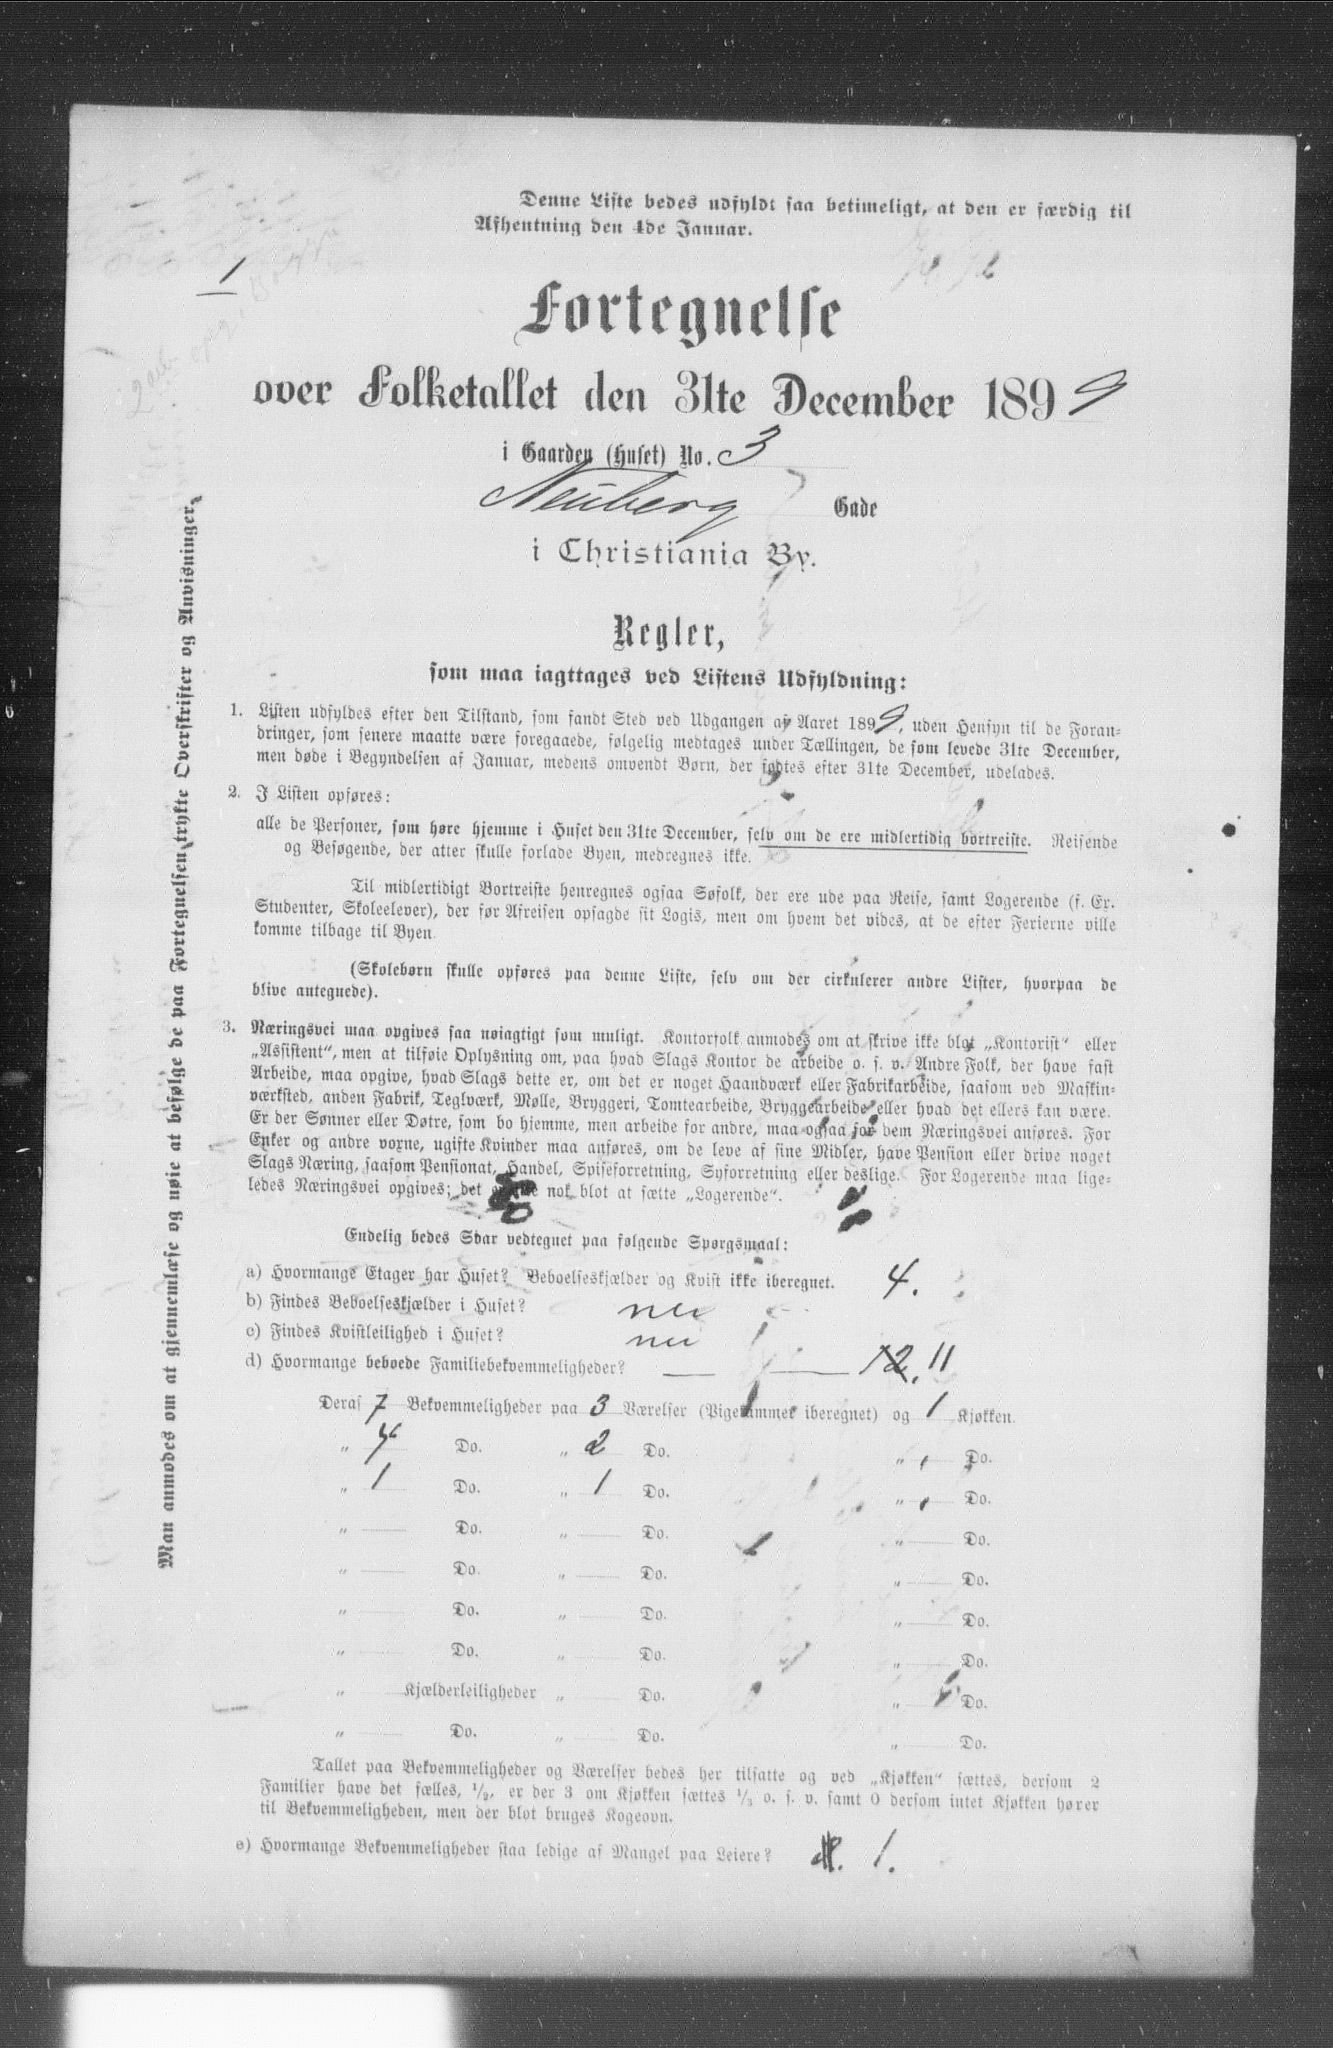 Denne Liste bedes udfyldt saa betimeligt, at den er færdig til
Afhentning den 4de Januar.
1
Fortegnelse
over Folketallet den 31te December 1899
i Gaarden (Huset) No. 3
Neuberg Gade
i Christiania By.
Regler,
som maa iagttages ved Listens Udfyldning:
1. Listen udfyldes efter den Tilstand, som fandt Sted ved Udgangen af Aaret 1899, uden Hensyn til de Foran-
dringer, som senere maatte være foregaaede, følgelig medtages under Tællingen, de som levede 31te December,
men døde i Begyndelsen af Januar, medens omvendt Børn, der fødtes efter 31te December, udelades.
2. I Listen opføres:
alle de Personer, som høre hjemme i Huset den 31te December, selv om de ere midlertidig bortreiste. Reisende
og Besøgende, der atter skulle forlade Byen, medregnes ikke.
Til midlertidigt Bortreiste henregnes ogsaa Søfolk, der ere ude paa Reise, samt Logerende (f. Ex.
Studenter, Skoleelever), der før Afreisen opsagde sit Logis, men om hvem det vides, at de efter Ferierne ville
komme tilbage til Byen.
(Skolebørn skulle opføres paa denne Liste, selv om der cirkulerer andre Lister, hvorpaa de
blive antegnede).
3. Næringsvei maa opgives saa nøiagtigt som muligt. Kontorfolk anmodes om at skrive ikke blot „Kontorist“ eller
„Assistent“, men at tilføie Oplysning om, paa hvad Slags Kontor de arbeide o. s. v. Andre Folk, der have fast
Arbeide, maa opgive, hvad Slags dette er, om det er noget Haandværk eller Fabrikarbeide, saasom ved Maskin-
værksted, anden Fabrik, Teglværk, Mølle, Bryggeri, Tomtearbeide, Bryggearbeide eller hvad det ellers kan være.
Er der Sønner eller Døtre, som bo hjemme, men arbeide for andre, maa ogsaa for dem Næringsvei anføres. For
Enker og andre voxne, ugifte Kvinder maa anføres, om de leve af sine Midler, have Pension eller drive noget
Slags Næring, saasom Pensionat, Handel, Spiseforretning, Syforretning eller deslige. For Logerende maa lige-
ledes Næringsvei opgives; det er ikke nok blot at sætte „Logerende“.
Endelig bedes Svar vedtegnet paa følgende Spørgsmaal:
a) Hvormange Etager har Huset? Beboelseskjælder og Kvist ikke iberegnet. 4.
b) Findes Beboelseskjælder i Huset? nei
c) Findes Kvistleilighed i Huset? nei
d) Hvormange beboede Familiebekvemmeligheder? 12. 11
Deraf 7 Bekvemmeligheder paa 3 Værelser (Pigekammer iberegnet) og 1 Kjøkken.
„ 4 Do. „ 2 Do. „ Do.
„ 1 Do. „ 1 Do. „ Do.
„ Do. „ Do. „ Do.
„ Do. „ Do. „ Do.
„ Do. „ Do. „ Do.
„ Do. „ Do. „ Do.
„ Kjælderleiligheder „ Do. „ Do.
„ Do. „ Do. „ Do.
Tallet paa Bekvemmeligheder og Værelser bedes her tilsatte og ved „Kjøkken“ sættes, dersom 2
Familier have det fælles, 1/2, er der 3 om Kjøkken sættes 1/3 o. s. v. samt 0 dersom intet Kjøkken hører
til Bekvemmeligheden, men der blot bruges Kogeovn.
e) Hvormange Bekvemmeligheder staa ledige af Mangel paa Leiere? 1.
Man anmodes om at gjennemlæse og nøie at befølge de paa Fortegnelsen trykte Overskrifter og Anvisninger.